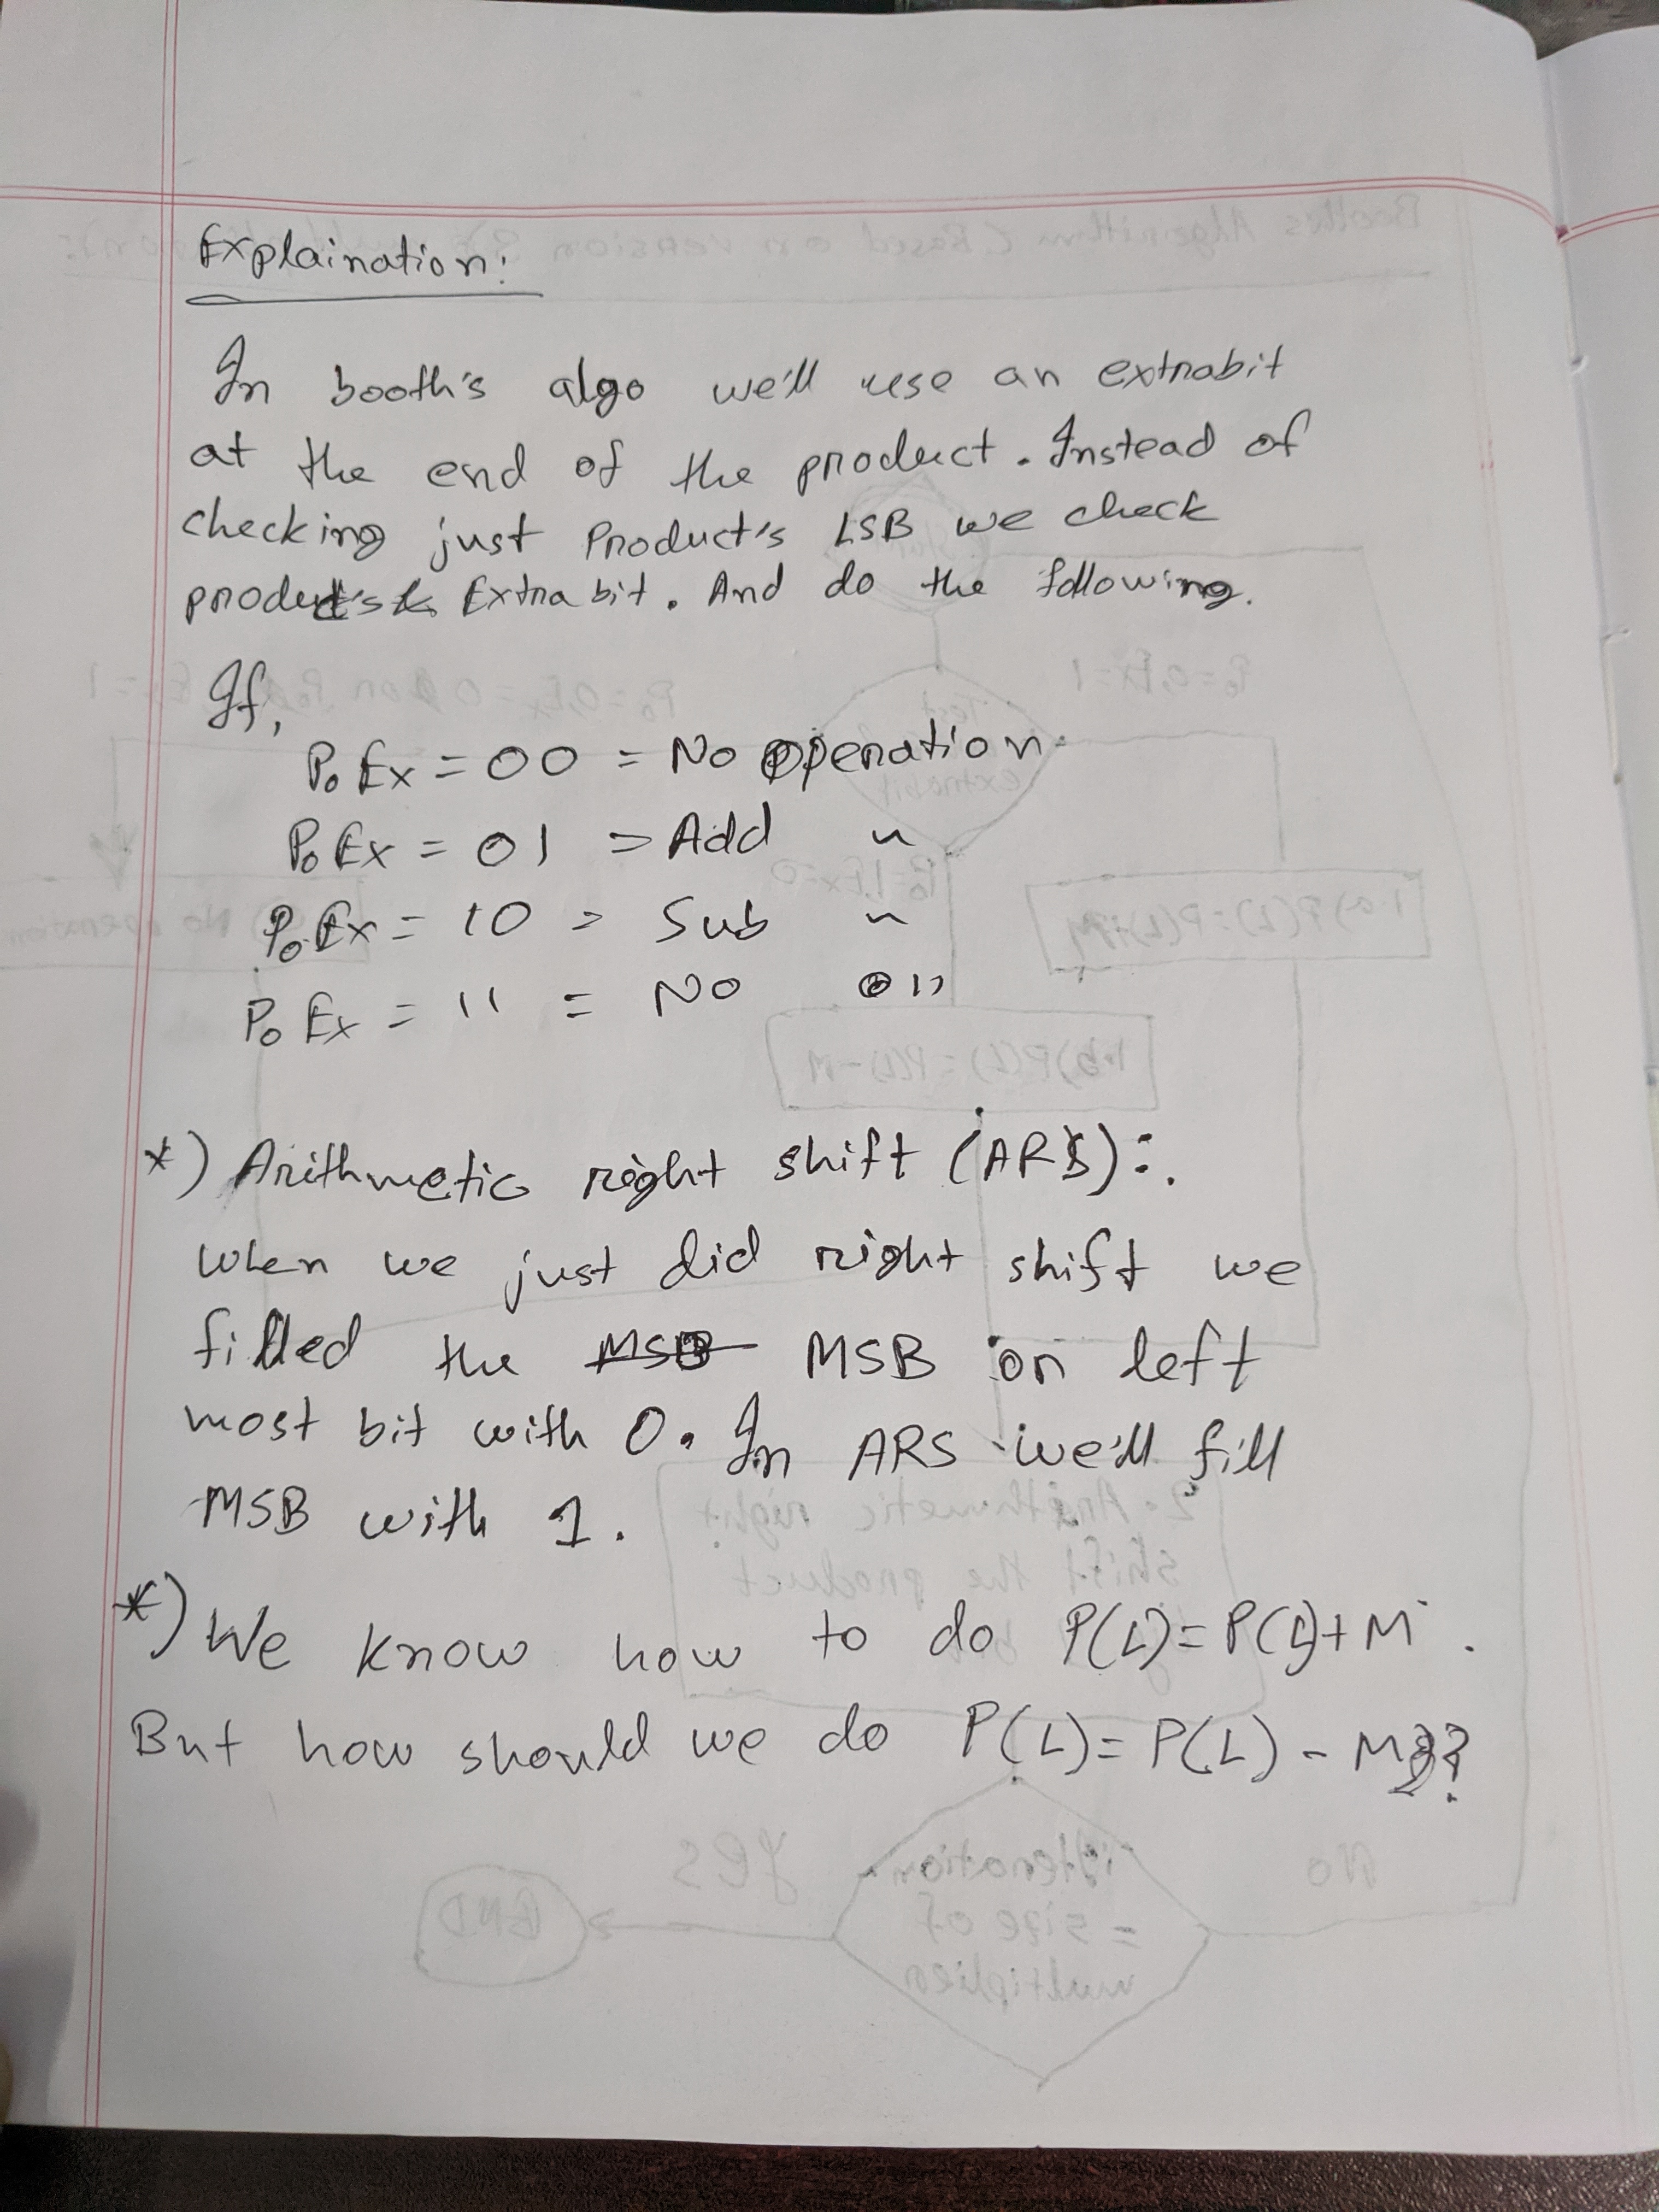 Explaination:
In booth's algo we'll use an extrabit
at the end of the product. Instead of
checking just Product's LSB we check
product's & Extra bit. And do the following.
If,
P₀ Ex = 00 = No operation
P₀ Ex = 01 = Add "
P₀ Ex = 10 = Sub "
P₀ Ex = 11 = No "
*) Arithmetic right shift (ARS):
When we just did right shift we
filled the MSB MSB or left
most bit with 0. In ARS we'll fill
MSB with 1.
*) We know how to do P(L)=P(L)+M.
But how should we do P(L)=P(L)-M??